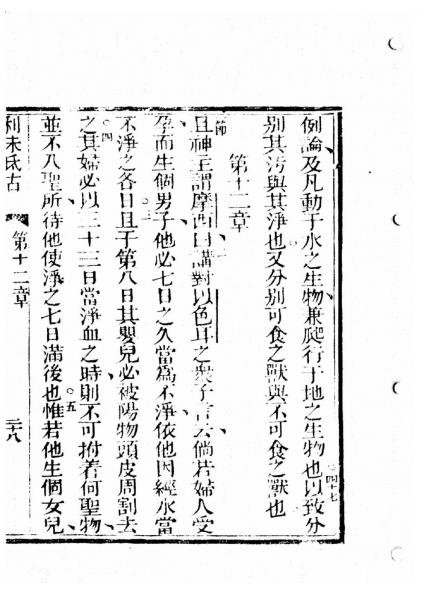 例論及凡動于水之生物兼爬行于地之生物也以致分
四十七
別其污與其淨也又分別可食之獸與不可食之獸也
第十二章
節一
且神主謂摩西曰講對以色耳之衆子言云倘若婦人受
二
孕而生個男子他必七日之久當為不淨依他因經水當
三
不淨之各日且于第八日其嬰兒必被陽物頭皮周割去
四
之其婦必以三十三日當淨血之時則不可拊着何聖物
五
並不入聖所待他使淨之七日滿後也惟若他生個女兒
利未氏古
第十二章
三八